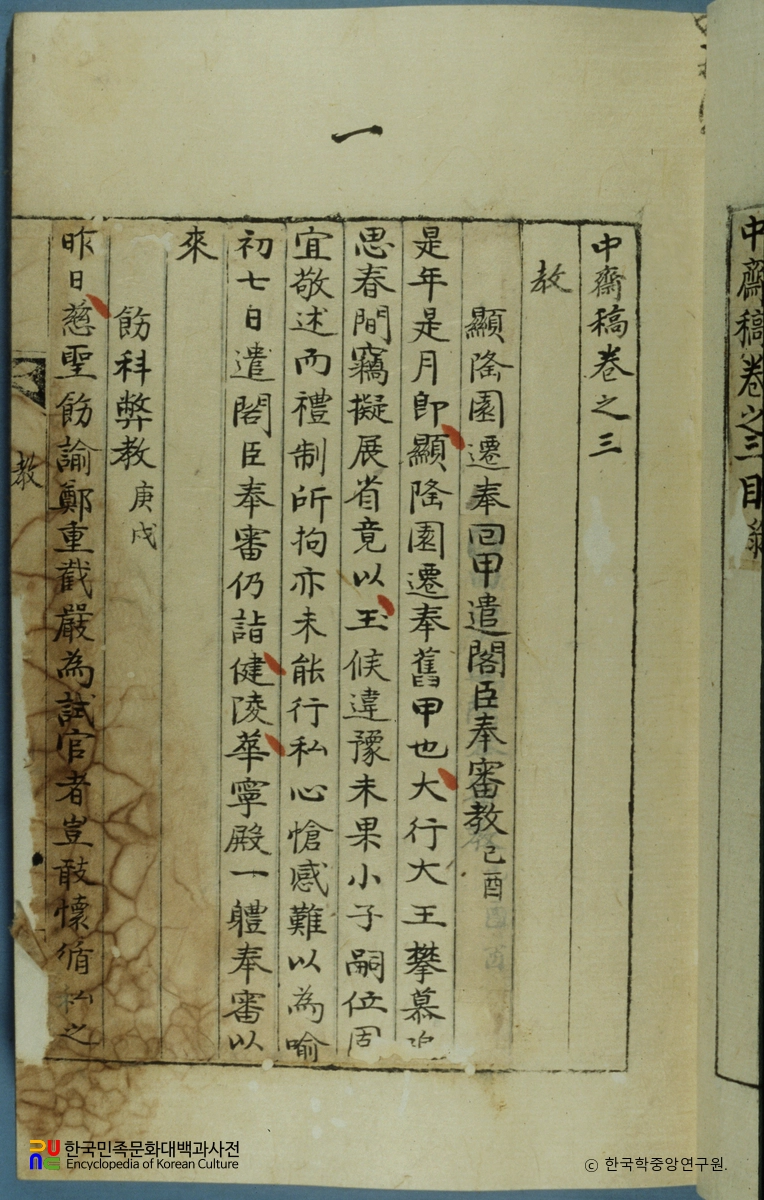 中齋稿卷之三目錄
一
中齋稿卷之三
教
顯隆園遷奉回甲遣閣臣奉審教 己酉
是年是月卽顯隆園遷奉舊甲也大行大王攀慕追
思春間竊擬展省竟以玉候違豫未果小子嗣位固
宜敬述而禮制所拘亦未能行私心愴感難以為喻
初七日遣閣臣奉審仍詣健陵華寧殿一軆奉審以
來
飭科弊教 庚戌
昨日慈聖飭諭鄭重截嚴為試官者豈敢懷循私之
教
한국민족문화대백과사전
Encyclopedia of Korean Culture
ⓒ 한국학중앙연구원.